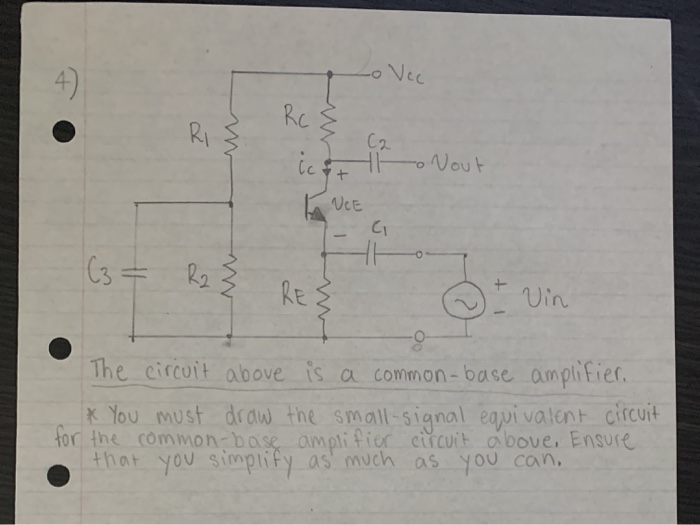 4)
Vcc
RC
R1
C2
ic
+
Vout
VCE
C1
-
C3
R2
RE
+
-
Vin
The circuit above is a common-base amplifier.
* You must draw the small-signal equivalent circuit
for the common-base amplifier circuit above. Ensure
that you simplify as much as you can.